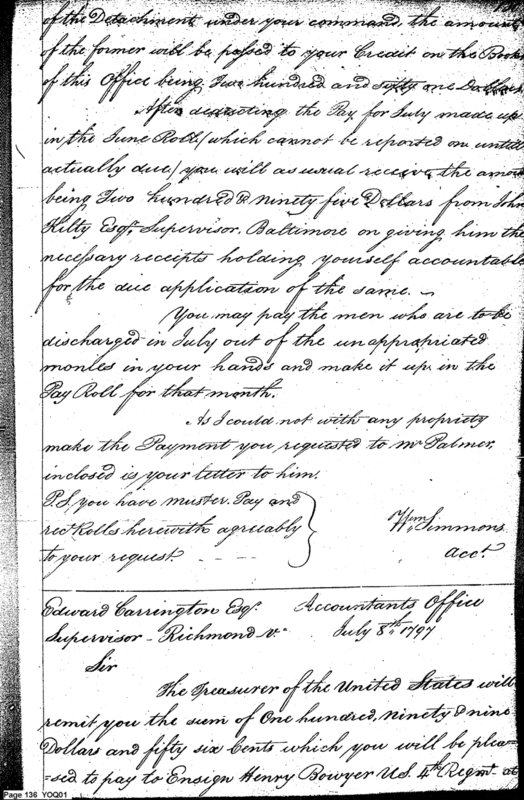 of the Detachment under your command, the amount
of the former will be passed to your Credit on the Books
of this Office being Two hundred and sixty one Dollars.
After deducting the Pay for July made up
in the June Roll (which cannot be reported on untill
actually due) you will as usual receive the amot
being Two hundred & ninety five Dollars from John
Kilty Esqr. Supervisor. Baltimore on giving him the
necessary receipts holding yourself accountable
for the due application of the same.
You may pay the men who are to be
discharged in July out of the unappropriated
monies in your hands and make it up in the
Pay Roll for that month.
As I could not with any propriety
make the Payment you requested to Mr Palmer,
inclosed is your letter to him.
P.S. you have muster. Pay and
rect Rolls herewith agreeably
to your request.
Wm Simmons
acct.
Edward Carrington Esqr. Accountants Office
Supervisor - Richmond Va. July 8th 1797
Sir
The Treasurer of the United States will
remit you the sum of One hundred, ninety & nine
Dollars and fifty six Cents which you will be plea-
-sed to pay to Ensign Henry Bowyer U.S. 4th Regmt at
Page 136 YOQ01